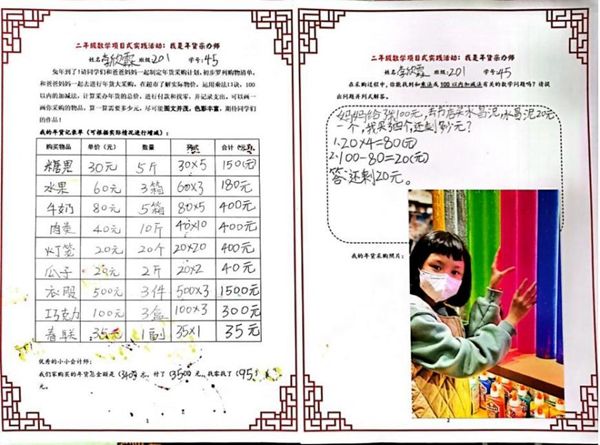 二年级数学项目式实践活动：我是年货采办师
班级201 学号45
兔年到了！请同学们和爸爸妈妈一起制定年货采购计划，初步罗列购物清单，
和爸爸妈妈一起去进行年货大采购，在超市了解实际物价，运用乘法口诀、100
以内的加减法，计算采办年货的总价，进行付款和找零，并记录支出，可以画一
画你采购的物品，算一算需要多少元，尽可能图文并茂，色彩丰富，期待同学们
的作品！
我的年货记账单（可根据实际情况进行增减）：
购买物品 单价（元） 数量 合计
糖果 30元 5斤 30×5 150元
水果 60元 3箱 60×3 180元
牛奶 80元 5箱 80×5 400元
40元 10斤 40×10 400元
灯笼 20元 20个 20×20 400元
瓜子 20元 2斤 20×2 40元
衣服 500元 3件 500×3 1500元
巧克力 100元 3盒 100×3 300元
春联 35元 1副 35×1 35元
优秀的小小会计师：
我们家购买的年货总金额是 元，付了3500元，我需找了95
元。
1
二年级数学项目式实践活动：我是年货采办师
班级201 学号45
在采购过程中，你能找到和乘法或100以内加减法有关的数学问题吗？请提
出问题并列式解答。
妈妈给了我100元，去书店买水晶泥，水晶泥20元
一个，我买了四个，还剩多少元？
1.20×4=80(元)
2.100-80=20(元)
答：还剩20元。
我的年货采购照片：
2